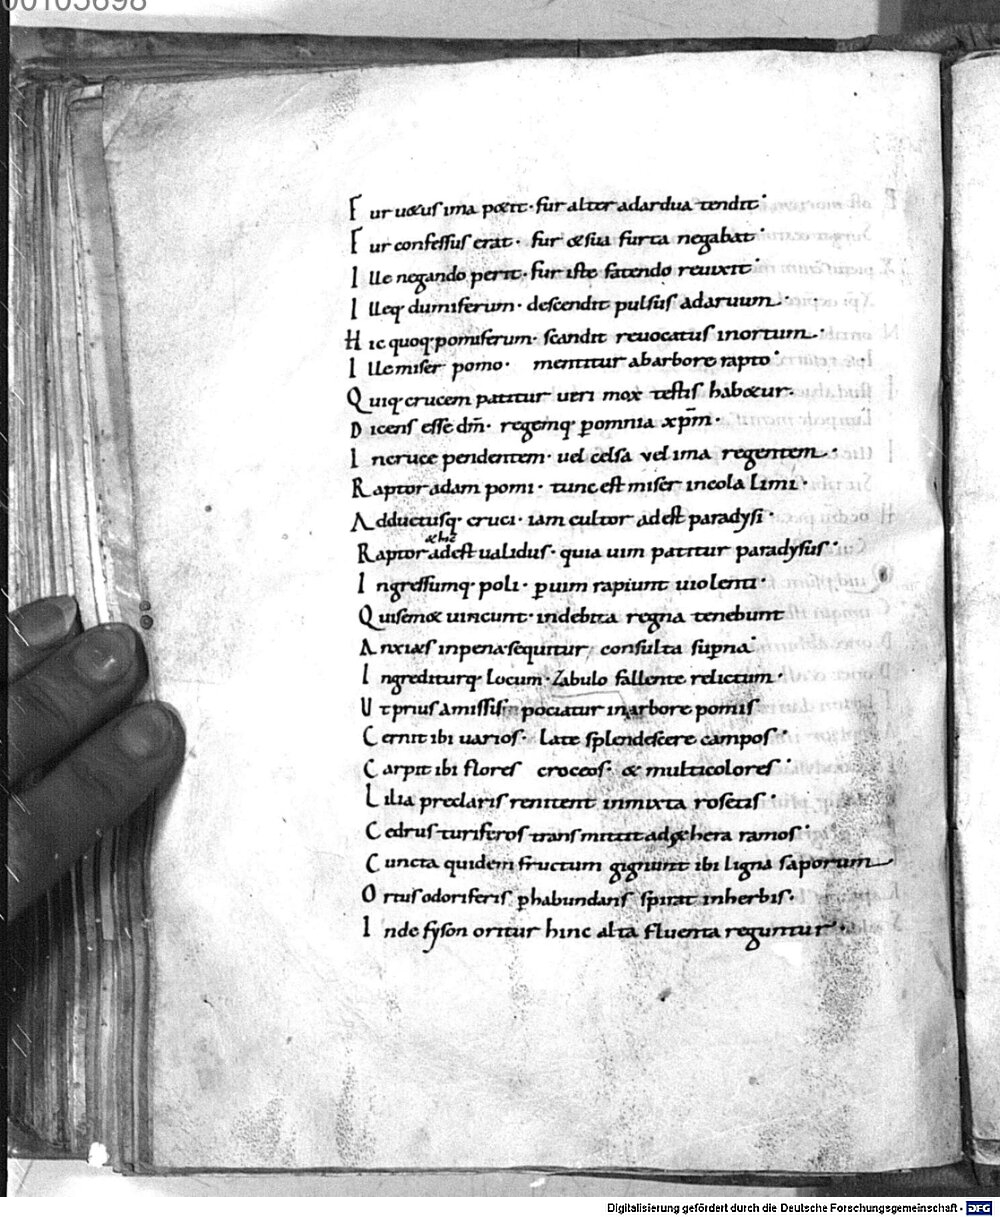 00105698
Fur uetus ima petit · fur alter adardua tendit ·
Fur confessus erat · fur & sua furta negabat ·
Ille negando perit · fur iste fatendo reuixit ·
Illeq; dumiferum · descendit pulsus adaruum ·
Hic quoq; pomiferum · scandit reuocatus inortum ·
Ille miser pomo · mentitur abarbore rapto ·
Quiq; crucem patitur ueri mox testis hab&ur ·
Dicens esse dm̄ · regemq; ꝑomnia xp̄m ·
Incruce pendentem · uel celsa vel ima regentem ·
Raptor adam pomi · tunc est miser incola limi ·
Adductusq; cruci · iam cultor adest paradysi ·
& hic
Raptor adest ualidus · quia uim patitur paradysus ·
Ingressumq; poli · ꝑuim rapiunt uiolenti ·
Quisem& uincunt · indebita regna tenebunt
Anxia&s inpena sequitur consulta suꝑna ·
Ingrediturq; locum · Zabulo fallente relictum ·
Ut prius amissis pociatur inarbore pomis
Cernit ibi uarios · late splendescere campos ·
Carpit ibi flores croceos · & multicolores ·
Lilia preclaris renitent inmixta rosetis ·
Cedrus turiferos transmittit ad&hera ramos ·
Cuncta quidem fructum gignunt ibi ligna saporum
Ortus odoriferis ꝑhabundans spirat inherbis ·
Inde fyson oritur hinc alta fluenta reguntur ·
Digitalisierung gefördert durch die Deutsche Forschungsgemeinschaft - DFG